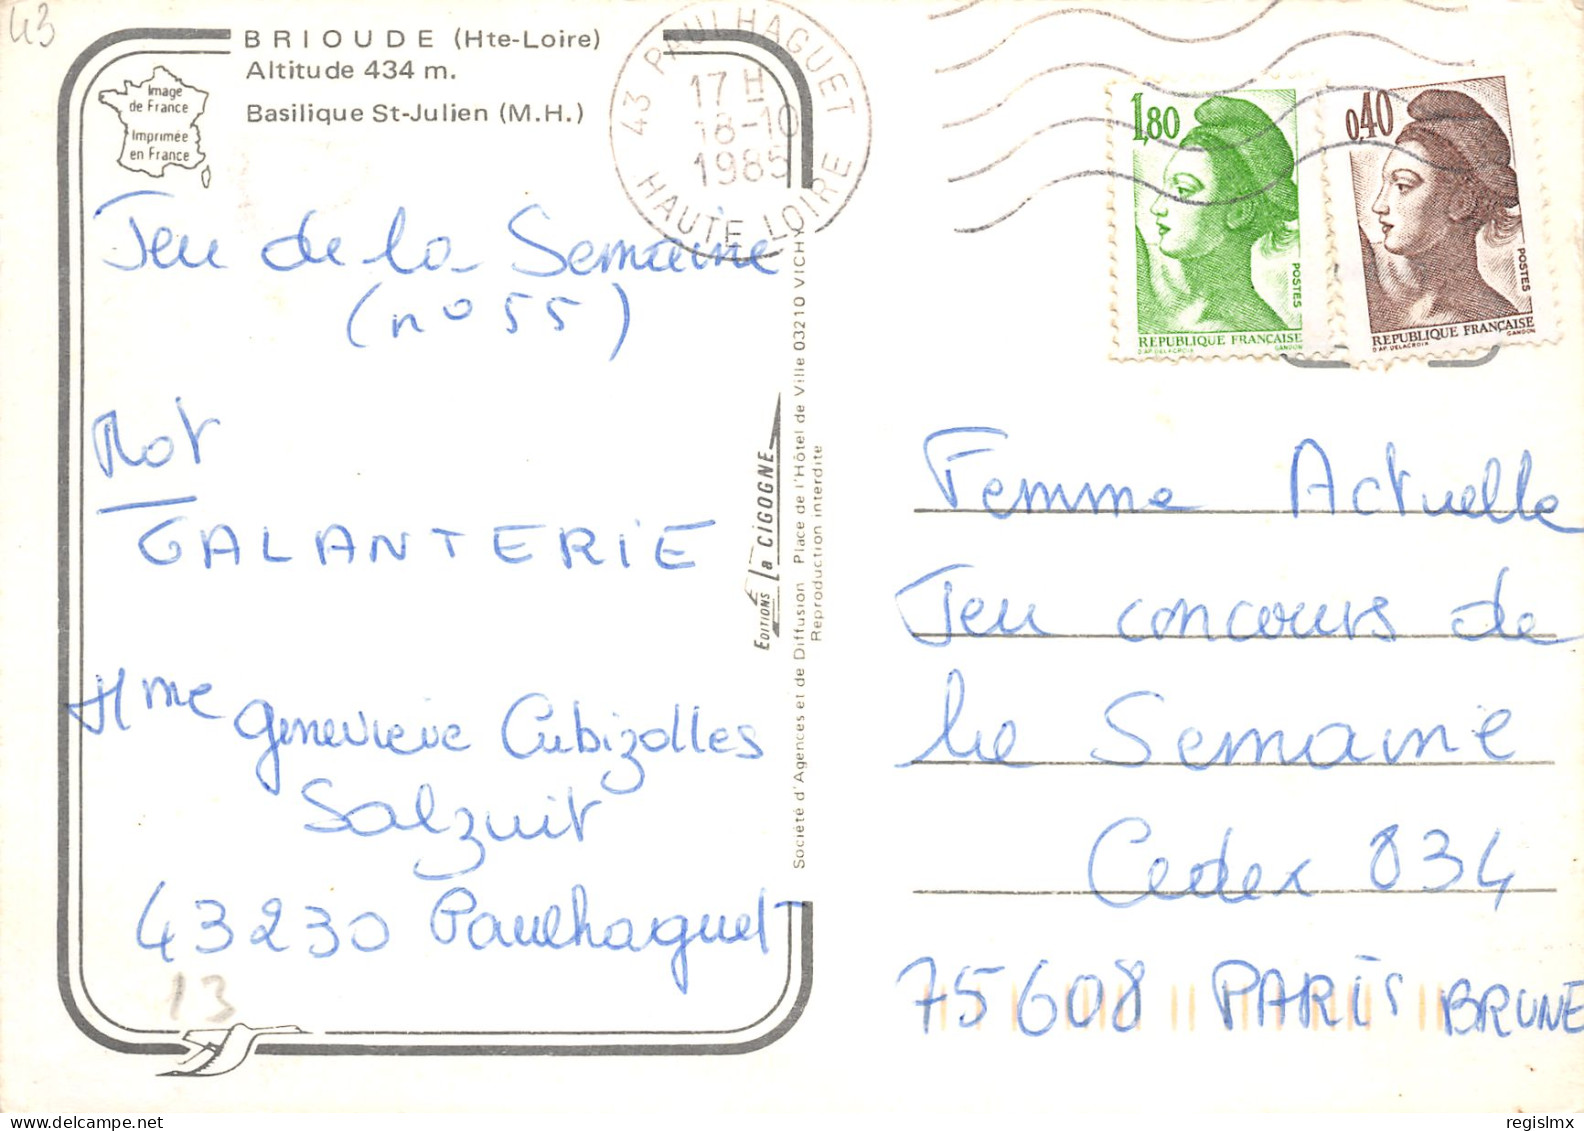 43
BRIOUDE (Hte-Loire)
Altitude 434 m.
Basilique St-Julien (M.H.)
Image
de France
Imprimée
en France
43 PAULHAGUET
17 H
18-10
1985
HAUTE LOIRE
1,80
POSTES
REPUBLIQUE FRANÇAISE
D'AP. DELACROIX GANDON
0,40
POSTES
REPUBLIQUE FRANÇAISE
D'AP. DELACROIX GANDON
Jeu de la Semaine
(n° 55)
Mot
GALANTERIE
Mme Geneviève Cubizolles
Salzuit
43230 Paulhaguet
13
EDITIONS La CIGOGNE
Société d'Agences et de Diffusion Place de l'Hôtel de Ville 03210 VICHY
Reproduction interdite
Femme Actuelle
Jeu concours de
la Semaine
Cedex 834
75608 PARIS BRUNE
regislmx